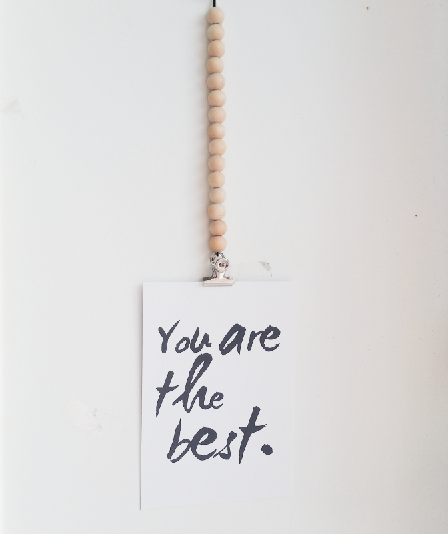 You are
the
best.